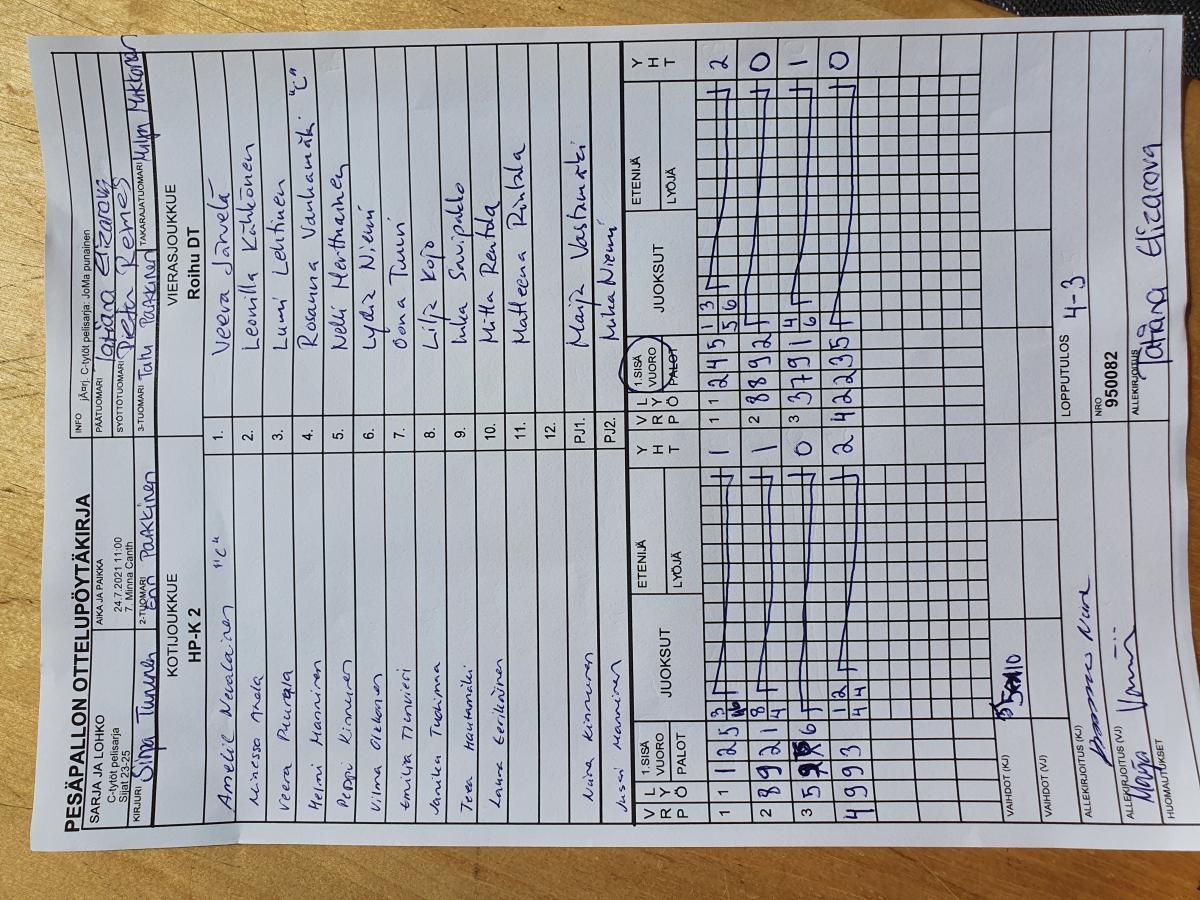 PESÄPALLON OTTELUPÖYTÄKIRJA
SARJA JA LOHKO
C-tytöt pelisarja
Sijat 23-25
AIKA JA PAIKKA
24.7.2021 11:00
7. Minna Canth
INFO jÄ¤rj. C-tytöt pelisarja: JoMa punainen
PÄÄTUOMARI Tatiana Elizarova
SYÖTTÖTUOMARI Pietu Remes
KIRJURI Sirpa Turunen
2-TUOMARI Eno Parkkinen
3-TUOMARI Taitu Parkkinen
TAKARAJATUOMARI Milja Mikkonen
KOTIJOUKKUE
HP-K 2
VIERASJOUKKUE
Roihu DT
Ameliil Nevalainen "C" 1. Veera Järvelä
Minessa Anela 2. Leonilla Kähkönen
Veera Puurula 3. Lumi Lehtinen
Helmi Manninen 4. Rosanna Vanhamäki "C"
Peppi Kinnunen 5. Nelli Herttuainen
Vilma Okkonen 6. Lydia Niemi
Emilja 7. Oona Tuuri
Janika 8. Lilja Kojo
Teea Hautamäki 9. Inka Savipakko
Laura Eerikäinen 10. Mitta Rentola
11. Matleena Rintala
12.
Niina Kinnunen PJ1. Marja Vastamäki
Jussi Manninen PJ2. Mika Niemi
V R P L Y Ö 1.SISÄ VUORO PALOT JUOKSUT ETENIJÄ LYÖJÄ Y H T V R P L Y Ö 1.SISÄ VUORO PALOT JUOKSUT ETENIJÄ LYÖJÄ Y H T
1 1 1 2 5 3 1 1 1 2 4 5 1 3 5 6 2
2 8 9 2 1 8 4 1 2 8 8 9 2 0
3 5 6 0 3 3 7 9 1 4 6 1
4 9 9 3 1 2 4 4 2 4 2 2 3 5 0
VAIHDOT (KJ)
VAIHDOT (VJ)
LOPPUTULOS 4-3
ALLEKIRJOITUS (KJ)
NRO
950082
ALLEKIRJOITUS (VJ) Marja
ALLEKIRJOITUS Tatiana Elizarova
HUOMAUTUKSET